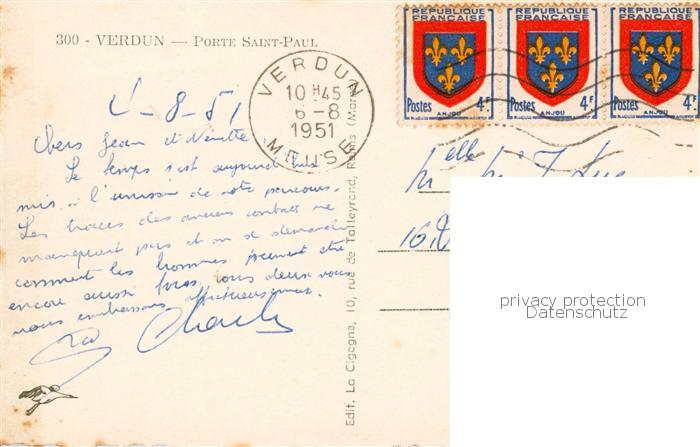 300 - VERDUN — PORTE SAINT-PAUL
VERDUN
10 H45
6-8
1951
MEUSE
REPUBLIQUE FRANÇAISE
Postes 4F
ANJOU
REPUBLIQUE FRANÇAISE
Postes 4F
ANJOU
REPUBLIQUE FRANÇAISE
Postes 4F
ANJOU
4-8-51
Chers Jean et
Le temps s'est aujourd'hui
mis à l'unisson de notre parcours.
Les traces des anciens combats ne
manquent pas et on se demande
comment les hommes peuvent être
encore aussi fous, tous deux vous
nous embrassons affectueusement.
Charles
Edit. La Cigogne, 10, rue de Talleyrand, Reims (Marne)
Melle
16,
privacy protection
Datenschutz